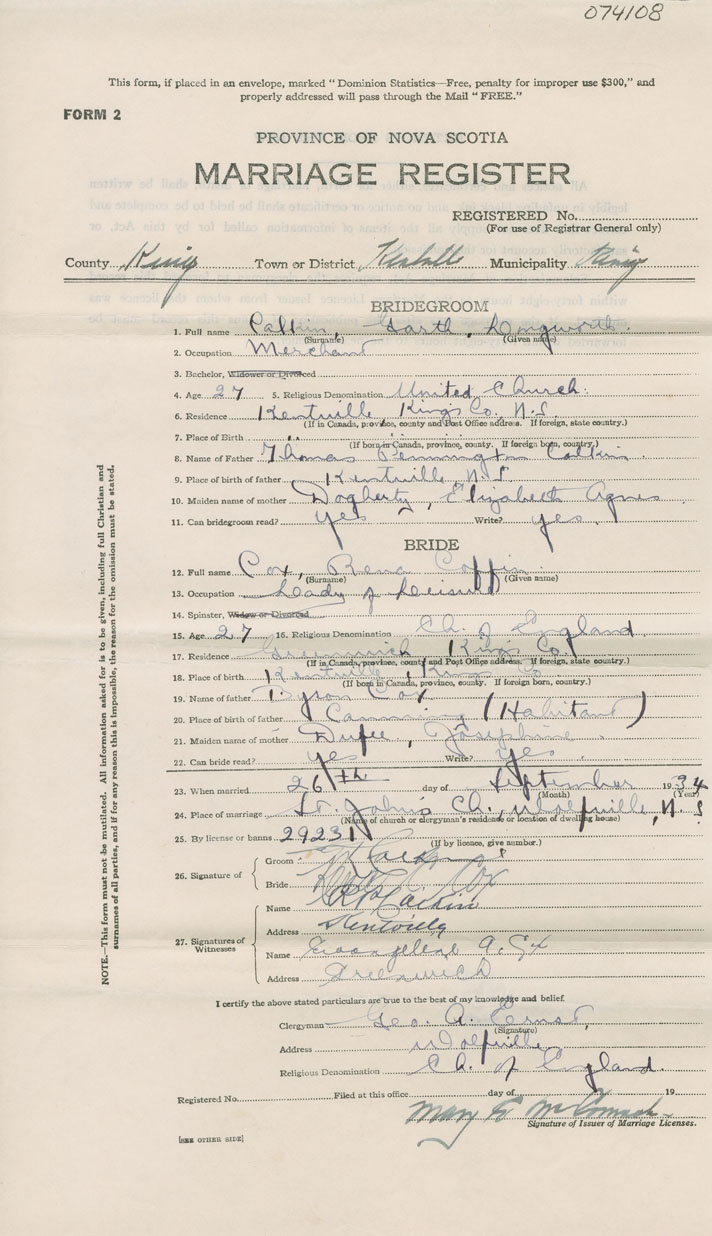 074108
This form, if placed in an envelope, marked "Dominion Statistics—Free, penalty for improper use $300," and
properly addressed will pass through the Mail "FREE."
FORM 2
PROVINCE OF NOVA SCOTIA
MARRIAGE REGISTER
REGISTERED No.
(For use of Registrar General only)
County Kings Town or District Kentville Municipality Kings
BRIDEGROOM
1. Full name Calkin, Garth, Longworth.
(Surname) (Given name)
2. Occupation Merchant
3. Bachelor, Widower or Divorced
4. Age 27 5. Religious Denomination United Church.
6. Residence Kentville Kings Co. N.S.
(If in Canada, province, county and Post Office address. If foreign, state country.)
7. Place of Birth " "
(If born in Canada, province, county. If foreign born, country.)
8. Name of Father Thomas Pennington Calkin
9. Place of birth of father Kentville N.S.
10. Maiden name of mother Dogherty, Elizabeth Agnes
11. Can bridegroom read? yes Write? yes.
BRIDE
12. Full name Cox, Rena Coffin
(Surname) (Given name)
13. Occupation Lady of Leisure
14. Spinster, Widow or Divorced
15. Age 27 16. Religious Denomination Ch. of England
17. Residence Greenwich Kings Co.
(If in Canada, province, county and Post Office address. If foreign, state country.)
18. Place of birth Kentville, Kings Co
(If born in Canada, province, county. If foreign born, country.)
19. Name of father Tryson Cox
20. Place of birth of father Canning (Habitant)
21. Maiden name of mother Josephine
22. Can bride read? yes Write? yes.
23. When married 26th day of September 1934
(Month) (Year)
24. Place of marriage St. John's Ch., Wolfville, N.S
(Name of church or clergyman's residence or location of dwelling house)
25. By license or banns 29231
(If by licence, give number.)
26. Signature of
Groom Calkin
Bride Cox
27. Signatures of Witnesses
Name Calkin
Address Kentville
Name Evangeline A. Cox
Address Greenwich
I certify the above stated particulars are true to the best of my knowledge and belief.
Clergyman Geo. A. Ernst,
(Signature)
Address Wolfville
Religious Denomination Ch. of England.
Registered No. Filed at this office day of 19
Mary
Signature of Issuer of Marriage Licenses.
[SEE OTHER SIDE]
NOTE.—This form must not be mutilated. All information asked for is to be given, including full Christian and
surnames of all parties, and if for any reason this is impossible, the reason for the omission must be stated.